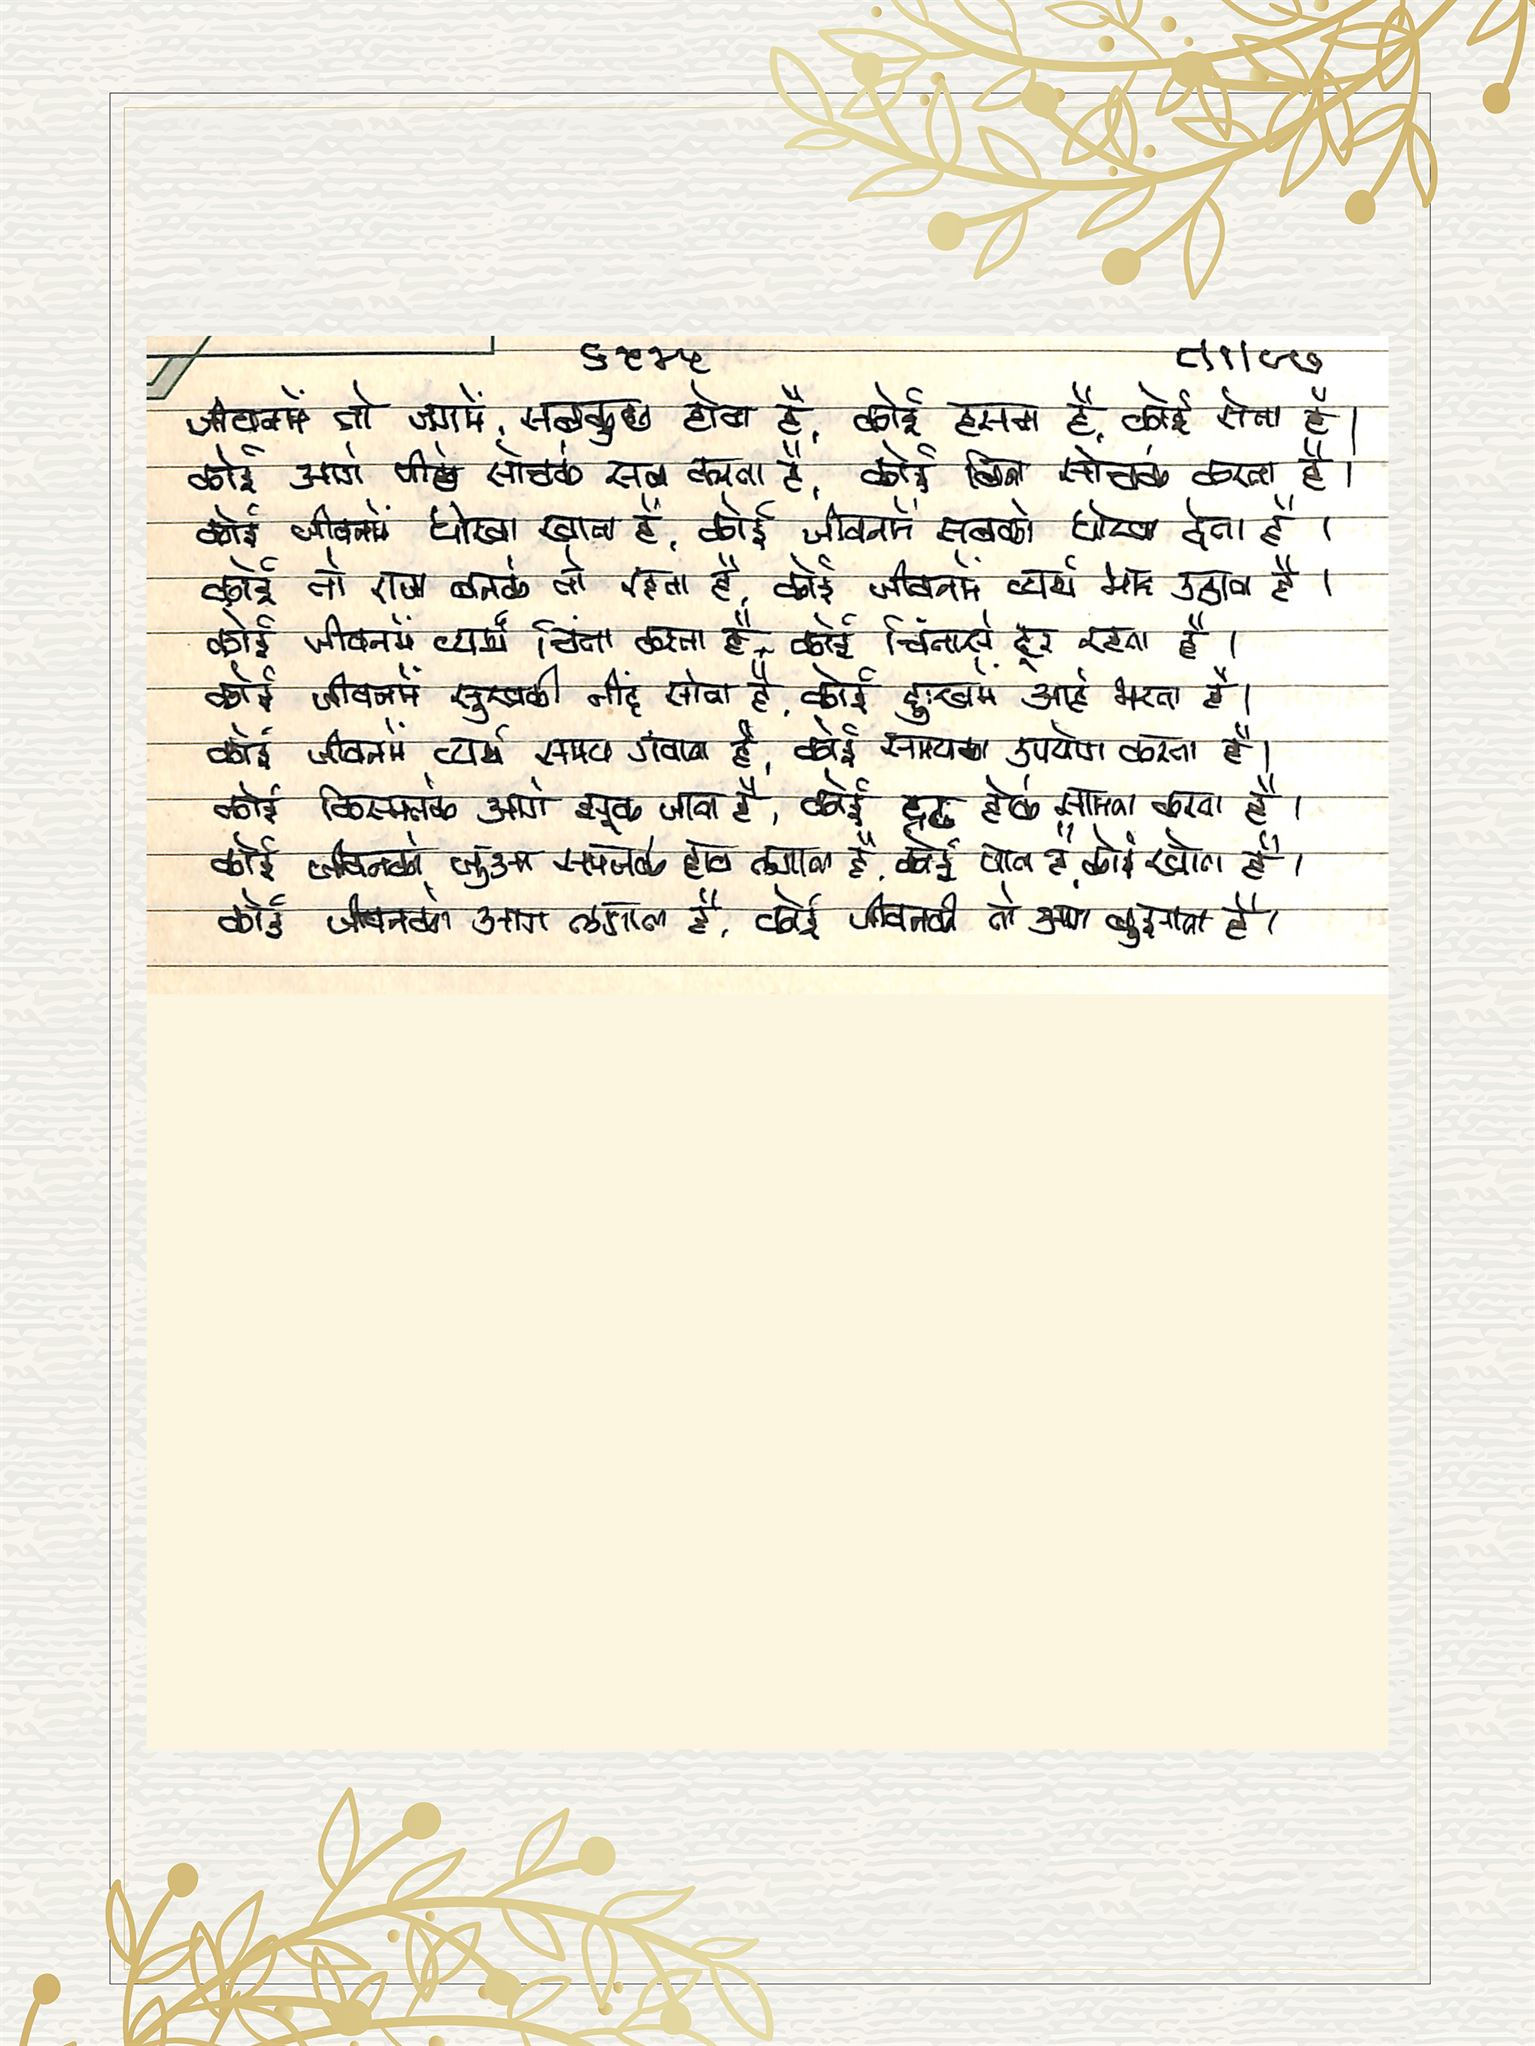 ६२४५ ८।१।८७
जीवनमें तो जगमें, सबकुछ होता है, कोई हसता है, कोई रोता है।
कोई आगे पीछे सोचके सब करता है, कोई बिना सोचके करता है।
कोई जीवनमें धोखा खाता है, कोई जीवनमें सबको धोखा देता है ।
कोई तो राजा बनके तो रहता है, कोई जीवनमें व्यर्थ भार उठाता है ।
कोई जीवनमें व्यर्थ चिंता करता है, कोई चिंतासे दूर रहता है ।
कोई जीवनमें सुखकी नींद सोता है, कोई दुःखमें आहे भरता है।
कोई जीवनमें व्यर्थ समय गंवाता है, कोई समयका उपयोग करता है।
कोई किस्मतके आगे झूक जाता है, कोई द्रढ होके सामना करता है ।
कोई जीवनको जुआ समजके दाव लगाता है, कोई पाता है, कोई खोता है ।
कोई जीवनको आग लगाता है, कोई जीवनकी तो आग बुझाता है।